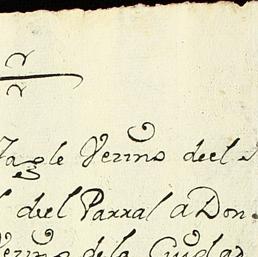 Tagle Vezino deel
deel Parral a Don
Vezino de la Ciudad